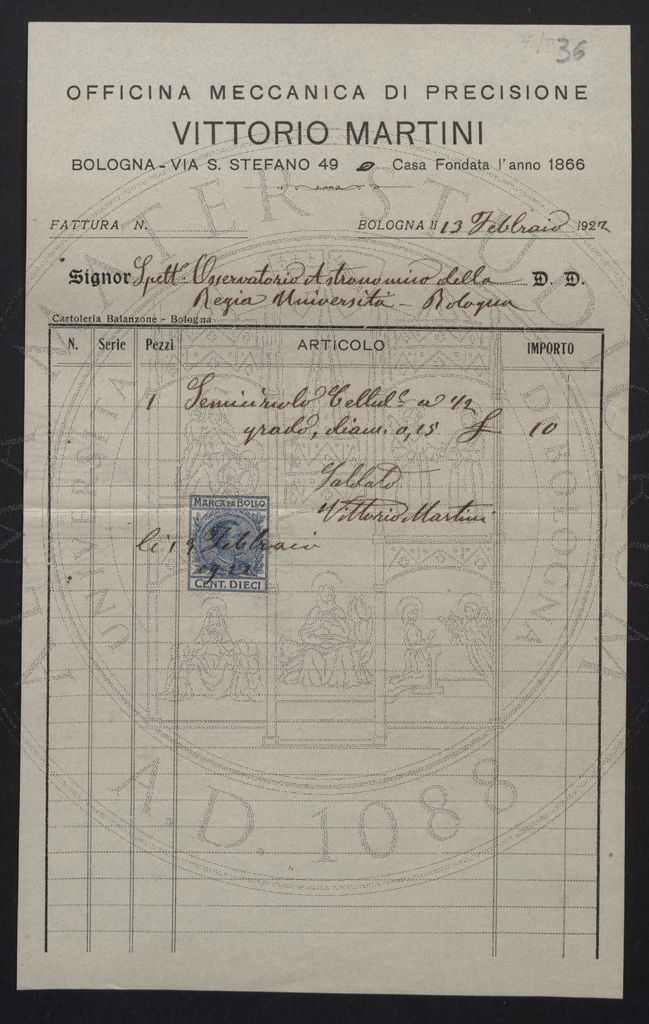 36
OFFICINA MECCANICA DI PRECISIONE
VITTORIO MARTINI
BOLOGNA - VIA S. STEFANO 49 Casa Fondata l'anno 1866
FATTURA N. BOLOGNA li 13 Febbraio 1922
Signor Spett. Osservatorio Astronomico della D. D.
Regia Università - Bologna
Cartoleria Balanzone - Bologna
N. Serie Pezzi ARTICOLO IMPORTO
1 Semicircolo Cellul. a 1/2
grado, diam. 0,15 £ 10
Saldato
Vittorio Martini
MARCA DA BOLLO
li 13 Febbraio
1922
CENT. DIECI
ALMA MATER STUDIORUM
UNIVERSITÀ DI BOLOGNA
A.D. 1088